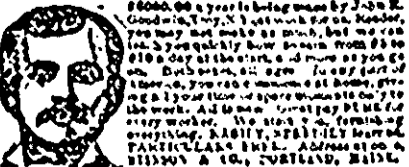 $6000.00 a year is being made by John R.
Goodwin, Troy, N.Y., at work for us. Reader,
you may not make as much, but we can
you quickly how to earn from $5 to
$10 a day at the start, and more as you go
on. Both sexes, all ages. In any part of
America, you can commence at home, giv-
ing all your time or spare moments only to
the work. All is new. Great pay SURE for
every worker. We start you, furnishing
everything. EASILY, SPEEDILY learned.
PARTICULARS FREE. Address at once,
STINSON & CO., PORTLAND, MAINE.